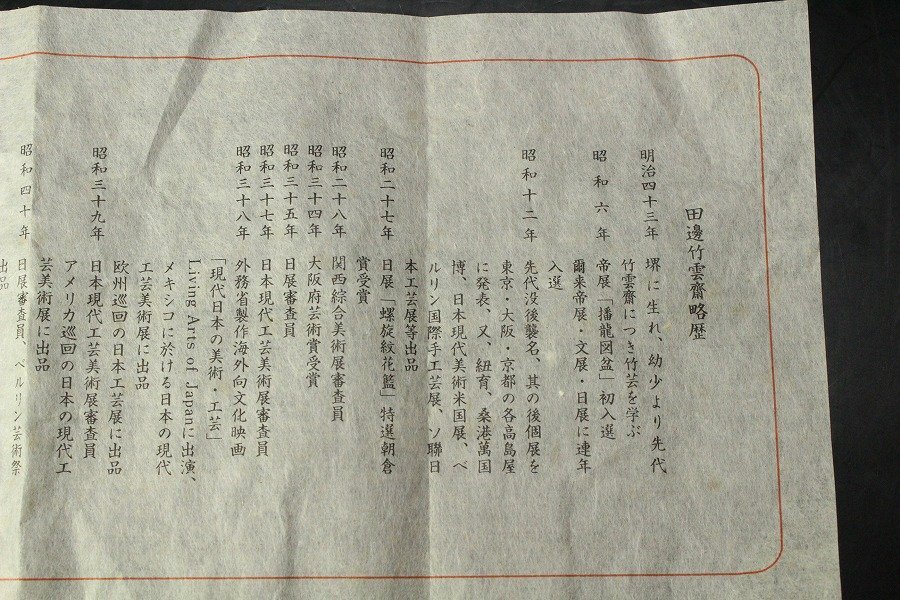 田邊竹雲齋略歴
明治四十三年 堺に生れ、幼少より先代
竹雲齋につき竹芸を学ぶ
昭和六年 帝展「播龍図盆」初入選
爾来帝展・文展・日展に連年
入選
昭和十二年 先代没後襲名、其の後個展を
東京・大阪・京都の各高島屋
に発表、又、紐育、桑港萬国
博、日本現代美術米国展、ベ
ルリン国際手工芸展、ソ聯日
本工芸展等出品
昭和二十七年 日展「螺旋紋花籃」特選朝倉
賞受賞
昭和二十八年 関西綜合美術展審査員
昭和三十四年 大阪府芸術賞受賞
昭和三十五年 日展審査員
昭和三十七年 日本現代工芸美術展審査員
昭和三十八年 外務省製作海外向文化映画
「現代日本の美術・工芸」
Living Arts of Japanに出演、
メキシコに於ける日本の現代
工芸美術展に出品
欧州巡回の日本工芸展に出品
昭和三十九年 日本現代工芸美術展審査員
アメリカ巡回の日本の現代工
芸美術展に出品
昭和四十年 日展審査員、ベルリン芸術祭
出品